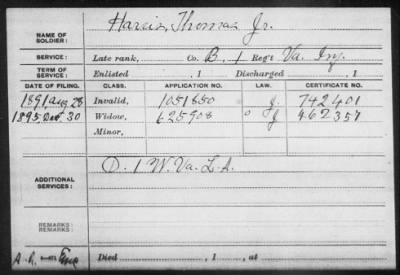 NAME OF SOLDIER: Harris, Thomas Jr.
SERVICE: Late rank, Co. B. 1 Reg't Va. Inf.
TERM OF SERVICE: Enlisted , 1 Discharged , 1
DATE OF FILING. CLASS. APPLICATION NO. LAW. CERTIFICATE NO.
1891 Aug 28 Invalid, 1051850 J. 742401
1895 30 Widow, 625908 J 462357
Minor,
ADDITIONAL SERVICES: D. 1 W. Va. L. A.
REMARKS:
Died , 1 , at